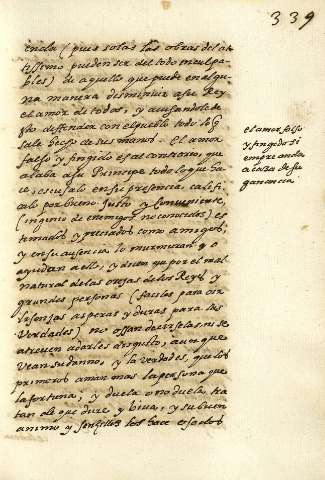 339
enda (pues solas las obras del al
tissimo pueden ser del todo inculpa
bles) de aquello que puede en algu
na manera disminuir a su Rey
el amor de todos, y acusandole de
ello defienden con el pueblo todo lo q
sale hecho de sus manos. El amor
falso y fingido es al contrario, que
alaba a su Principe todo lo que ha
ce, escusalo en su presencia, califi
calo por bueno Justo y Conveniente,
(ingenio de enemigos no conocidos) es
timados, y preciados como amigos,
y en su ausencia lo murmuran y o
ayudan a ello, y dicen que por el mal
natural de las orejas de los Reyes y
grandes personas (faciles para oir
lisonjas asperas y duras para las
verdades) no ossan decirselas, ni se
atreven a darles disgusto, aunque
vean su danno, y la verdad es, que los
primeros aman mas la persona que
la fortuna; y duela o no duela, tra
tan de que dure y viva, y su buen
animo y sencillez los hace esclavos
el amor falso
y fingido si
empre anda
a caza de su
ganancia